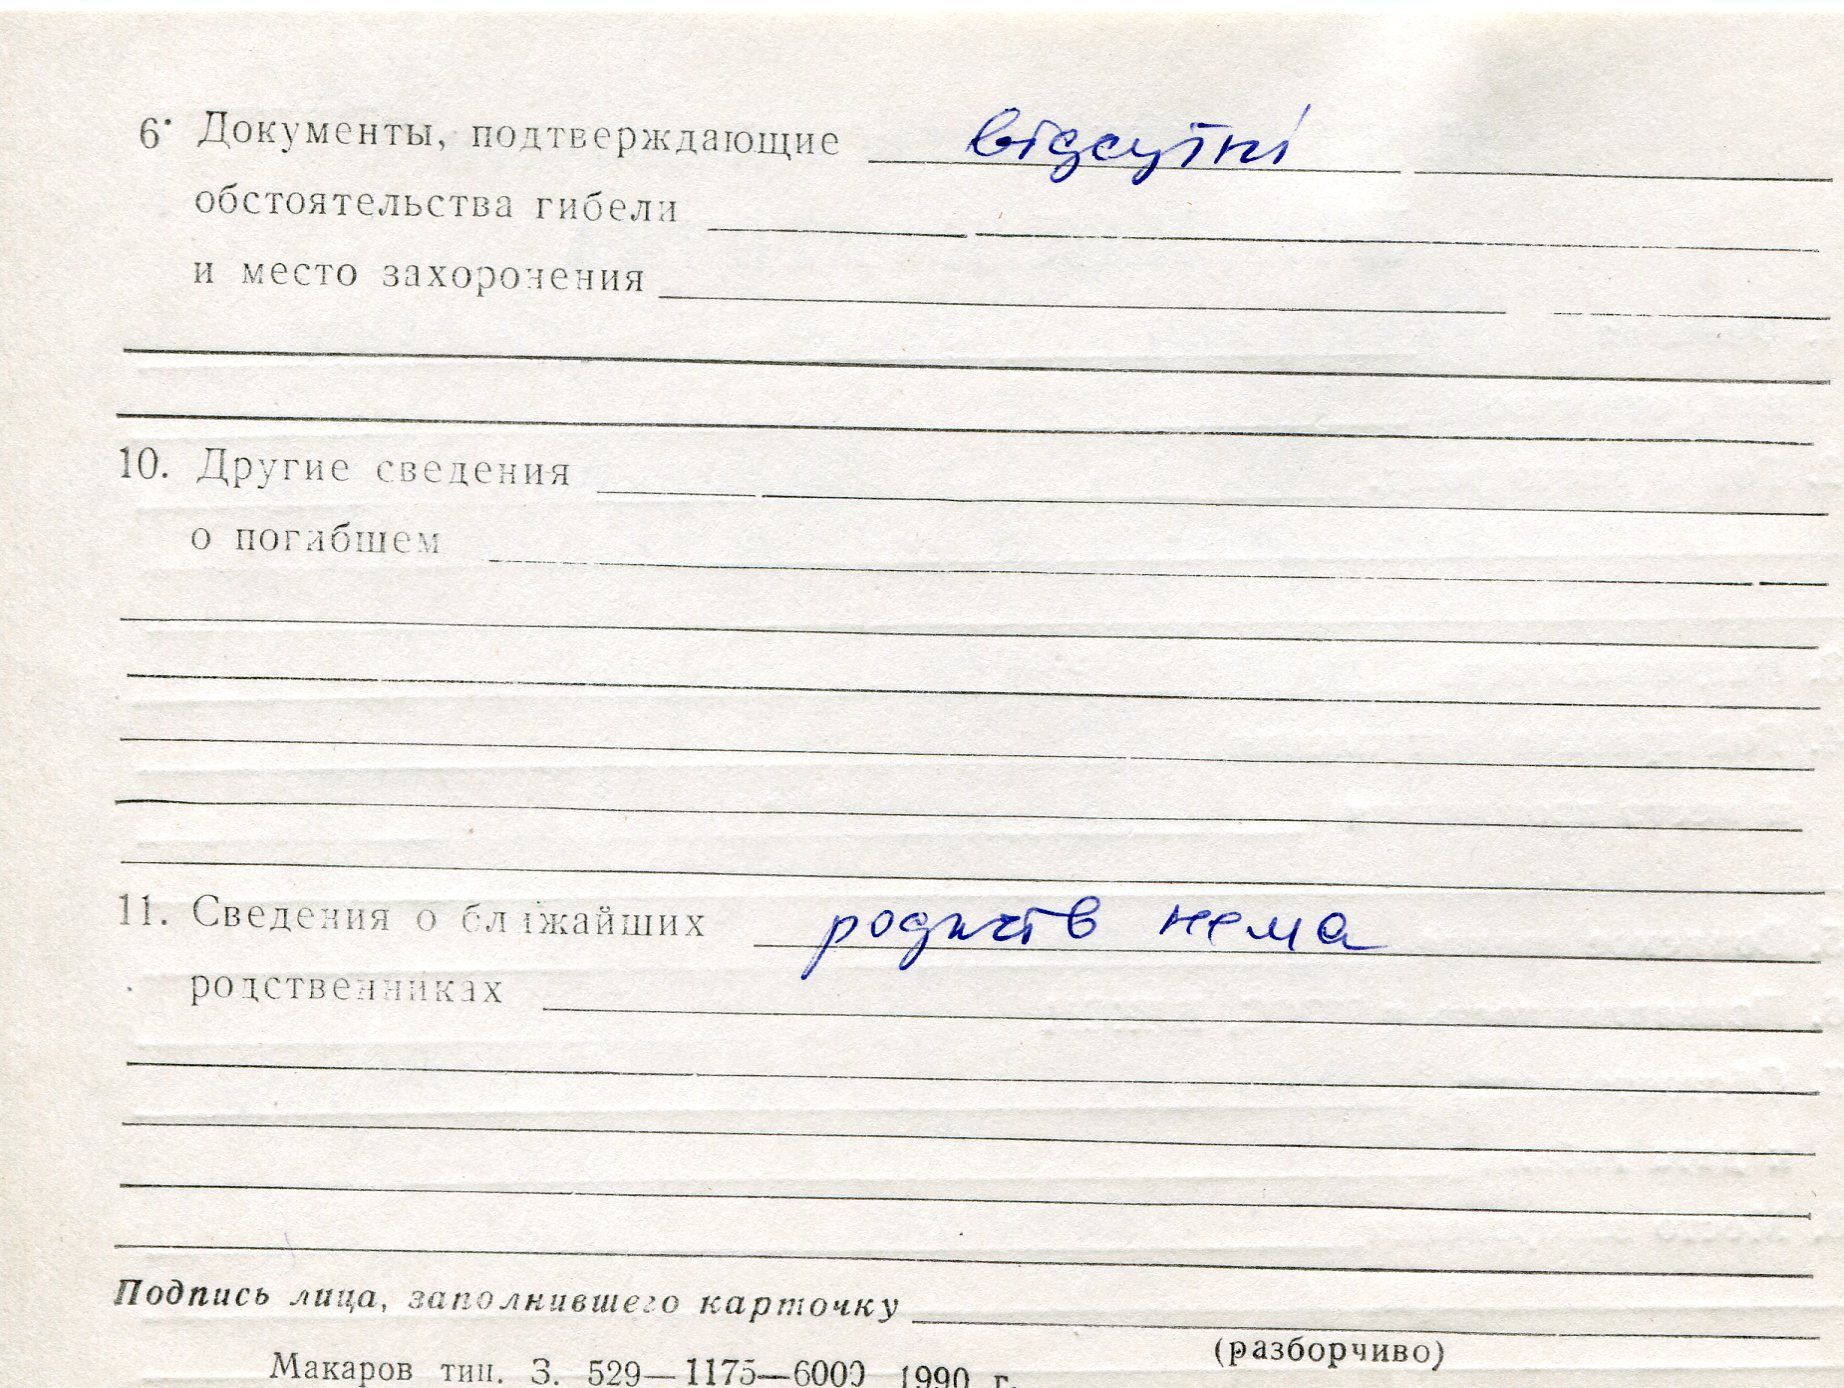 6. Документы, подтверждающие відсутні
обстоятельства гибели
и место захоронения
10. Другие сведения
о погибшем
11. Сведения о ближайших родичів нема
родственниках
Подпись лица, заполнившего карточку
(разборчиво)
Макаров тип. З. 529—1175—6000 1990 г.